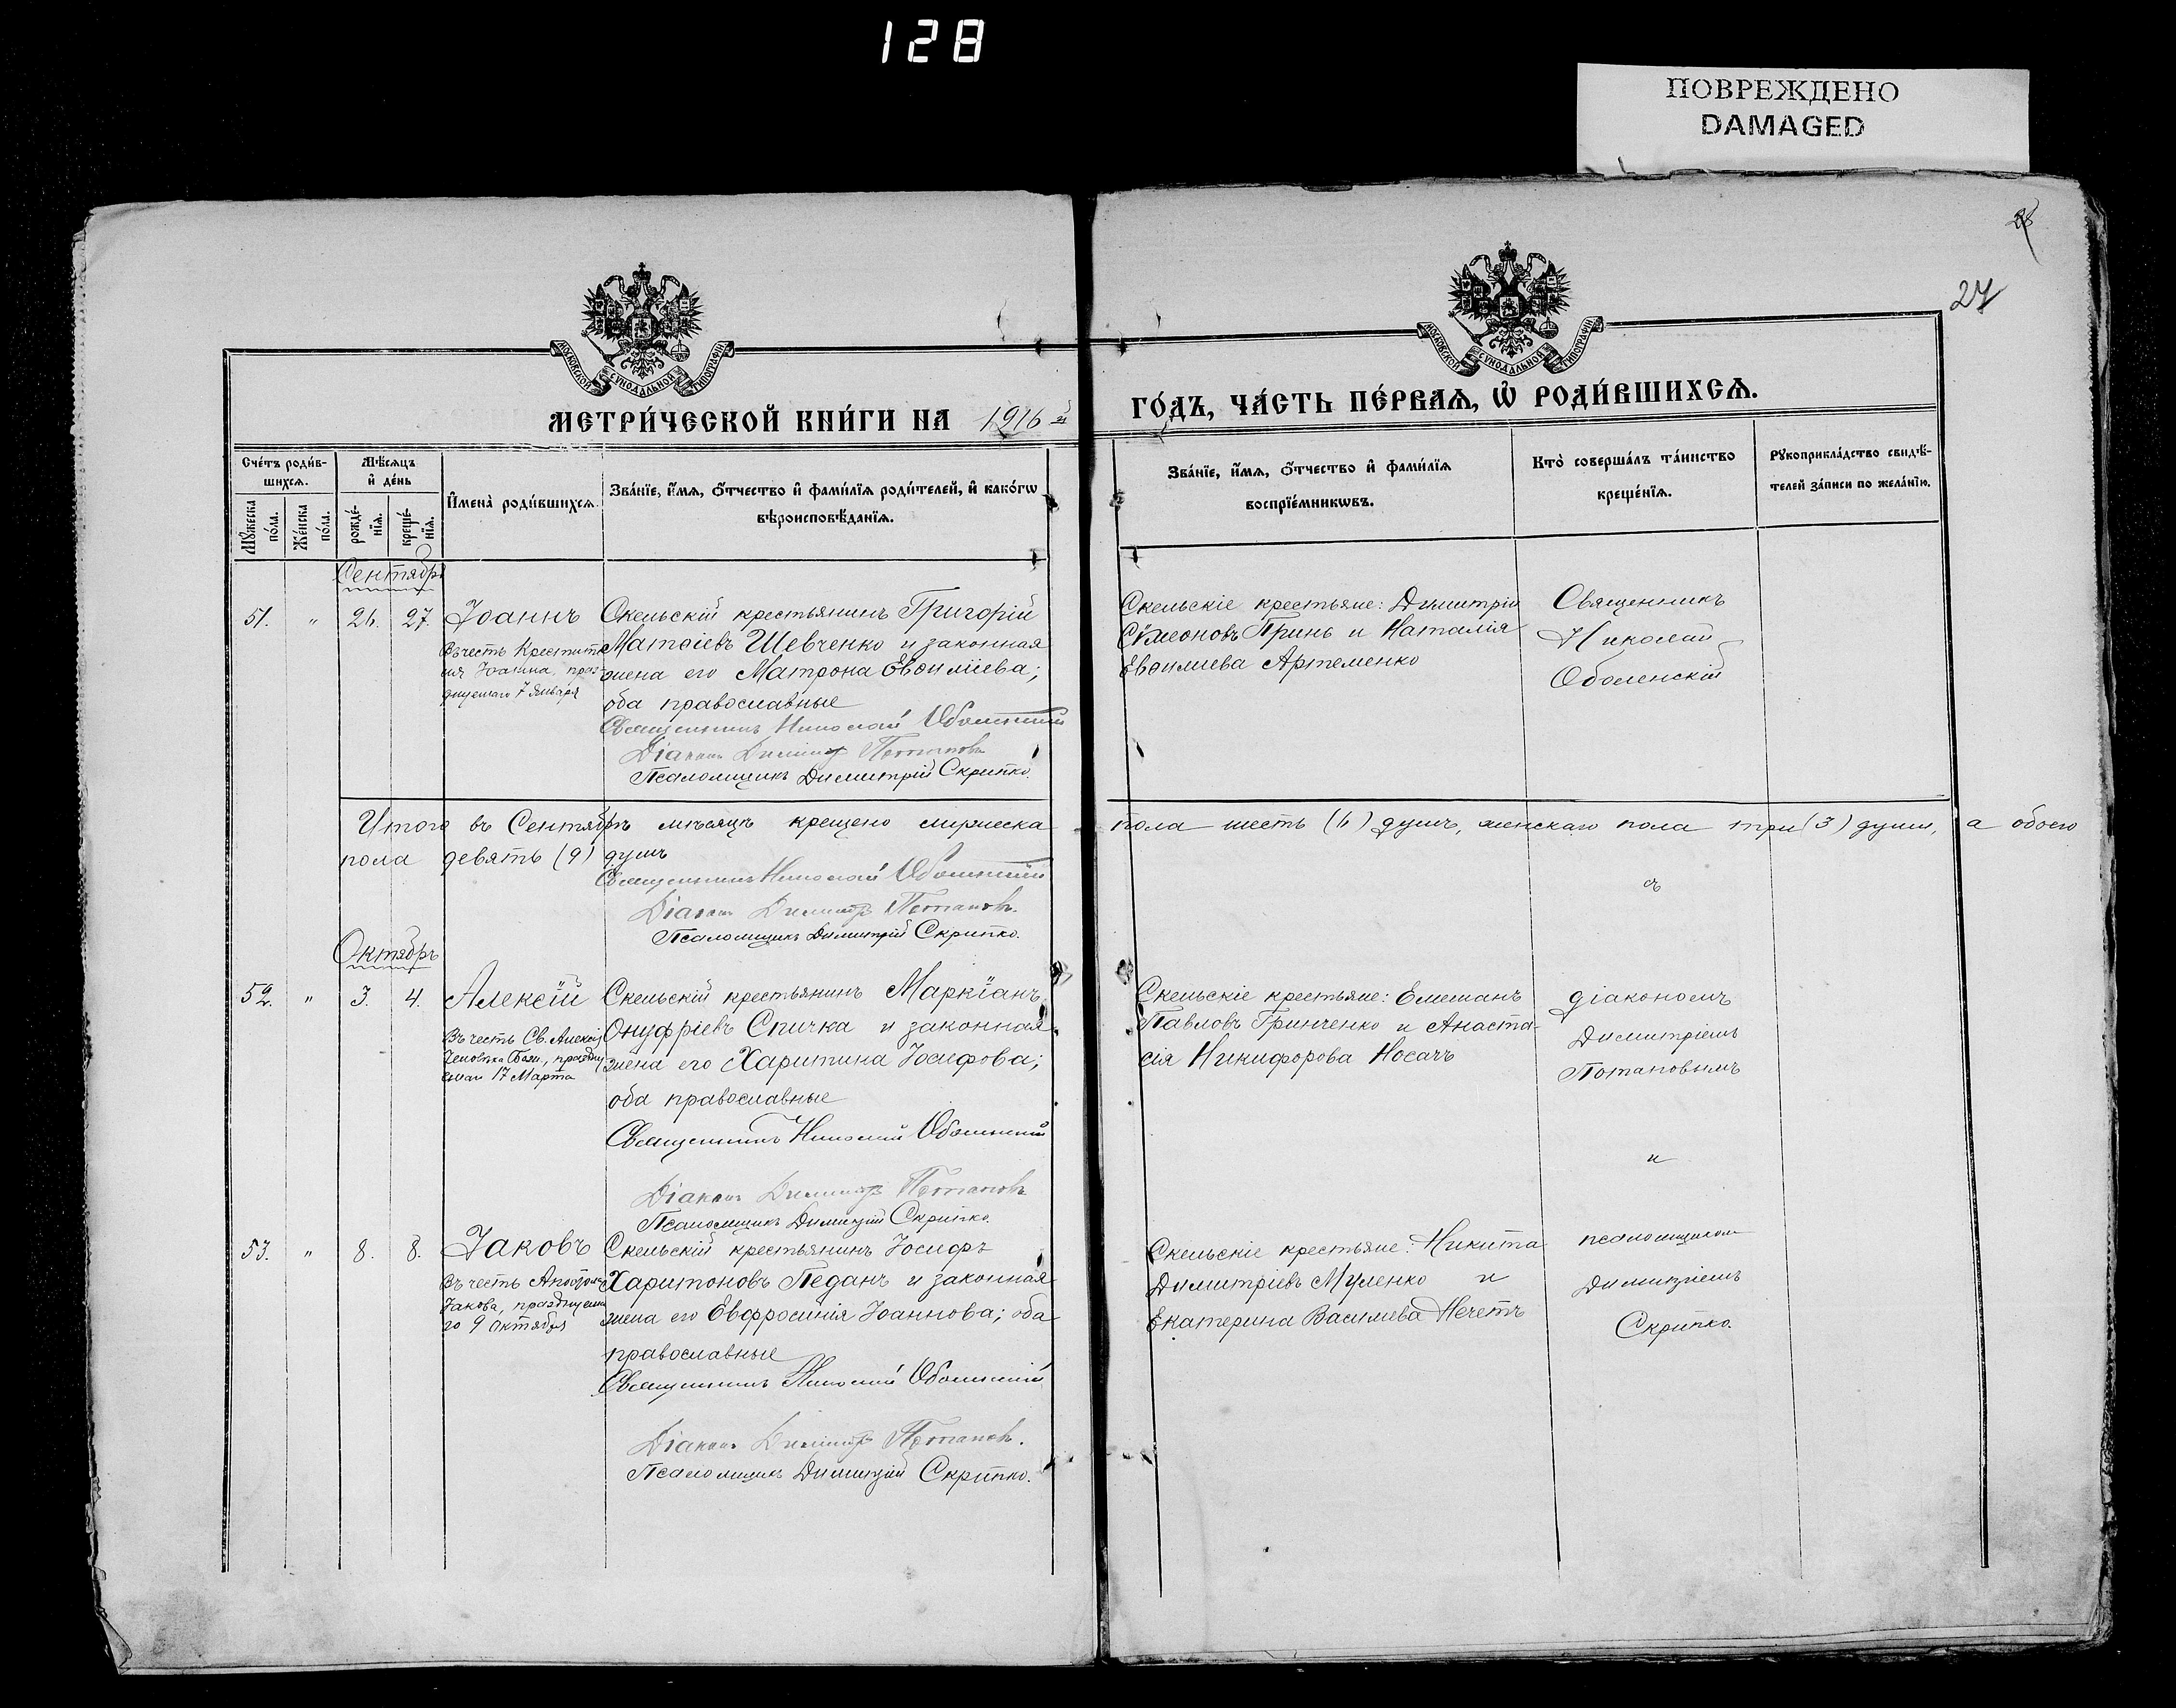 128
ПОВРЕЖДЕНО
DAMAGED
28
27
МОСКОВСКОЙ СѴНОДАЛЬНОЙ ТИПОГРАФІИ
МОСКОВСКОЙ СѴНОДАЛЬНОЙ ТИПОГРАФІИ
МЕТРИ́ЧЕСКОЙ КНИ́ГИ НА 1916 й
ГО́ДЪ, ЧА́СТЬ ПЕ́РВАѦ, Ѽ РОДИ́ВШИХСѦ.
Сче́тъ роди́в-
шихсѧ.
Мꙋ́жеска
по́ла.
Же́нска
по́ла.
Мѣ́сѧцъ
и҆ де́нь
рожде́-
нїѧ.
креще́-
нїѧ.
И҆мена̀ роди́вшихсѧ.
Зва́нїе, и҆́мѧ, ѻ҆́тчество и҆ фами́лїѧ роди́телей, и҆ како́гѡ
вѣроисповѣ́данїѧ.
Зва́нїе, и҆́мѧ, ѻ҆́тчество и҆ фами́лїѧ
воспрїе́мникѡвъ.
Кто̀ соверша́лъ та́инство
креще́нїѧ.
Рꙋкоприкла́дство свидѣ́-
телей за́писи по жела́нїю.
Сентябрь
51. " 26. 27. Іоаннъ
Въ честь Крестите-
ля Іоанна, праз-
днуемаго 7 Января
Скельскій крестьянинъ Григорій
Матѳіевъ Шевченко и законная
жена его Матрона Евѳиміева;
оба православные
Священникъ Николай Оболенскій
Діаконъ Димитрій Потаповъ
Псаломщикъ Димитрій Скрипко.
Скельскіе крестьяне: Димитрій
Сѵмеоновъ Гринь и Наталія
Евѳиміева Артеменко
Священникъ
Николай
Оболенскій
Итого въ Сентябрѣ мѣсяцѣ крещено мужеска пола шесть (6) душъ, женскаго пола три (3) души, а обоего
пола девять (9) душъ
Священникъ Николай Оболенскій
Діаконъ Димитрій Потаповъ.
Псаломщикъ Димитрій Скрипко.
съ
Октябрь
52. " 3. 4. Алексій
Въ честь Св. Алексія
Человѣка Божія, праздну-
емаго 17 Марта
Скельскій крестьянинъ Маркіанъ
Онуфріевъ Спичка и законная
жена его Харитина Іосифова;
оба православные
Священникъ Николай Оболенскій
Діаконъ Димитрій Потаповъ
Псаломщикъ Димитрій Скрипко.
Скельскіе крестьяне: Емельянъ
Павловъ Гринченко и Анаста-
сія Никифорова Носачъ
діакономъ
Димитріемъ
Потаповымъ
и
53. " 8. 8. Іаковъ
Въ честь Апостола
Іакова, празднуема-
го 9 Октября
Скельскій крестьянинъ Іосифъ
Харитоновъ Педанъ и законная
жена его Евфросинія Іоаннова; оба
православные
Священникъ Николай Оболенскій
Діаконъ Димитрій Потаповъ.
Псаломщикъ Димитрій Скрипко.
Скельскіе крестьяне: Никита
Димитріевъ Муленко и
Екатерина Василіева Нечетъ
псаломщикомъ
Димитріемъ
Скрипко.